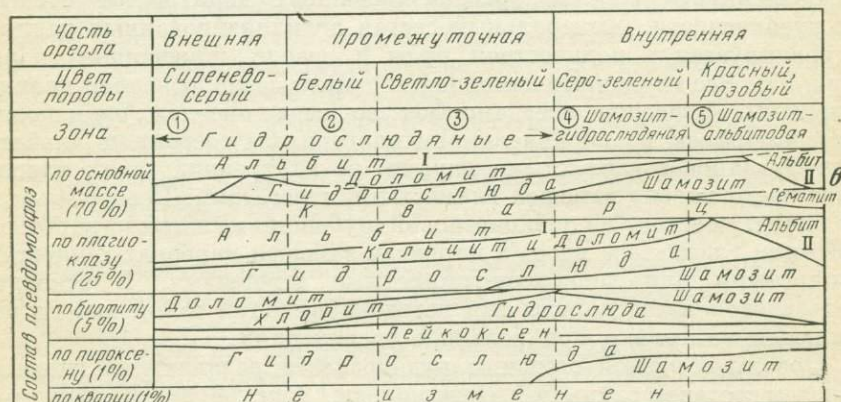 Часть ореала Внешняя Промежуточная Внутренняя
Цвет породы Сиренево-серый Белый Светло-зеленый Серо-зеленый Красный, розовый
Зона ① ② ③ Гидрослюдяные ④ Шамозит-гидрослюдяная ⑤ Шамозит-альбитовая
Состав псевдоморфоз
по основной массе (70%)
Альбит I
Доломит
Гидрослюда
Шамозит
Альбит II
Гематит
Кварц
в
по плагиоклазу (25%)
Альбит I
Кальцит и Доломит
Гидрослюда
Шамозит
Альбит II
по биотиту (5%)
Доломит
Хлорит
Гидрослюда
Шамозит
Лейкоксен
по пироксену (1%)
Гидрослюда
Шамозит
по кварцу (1%)
Не изменен